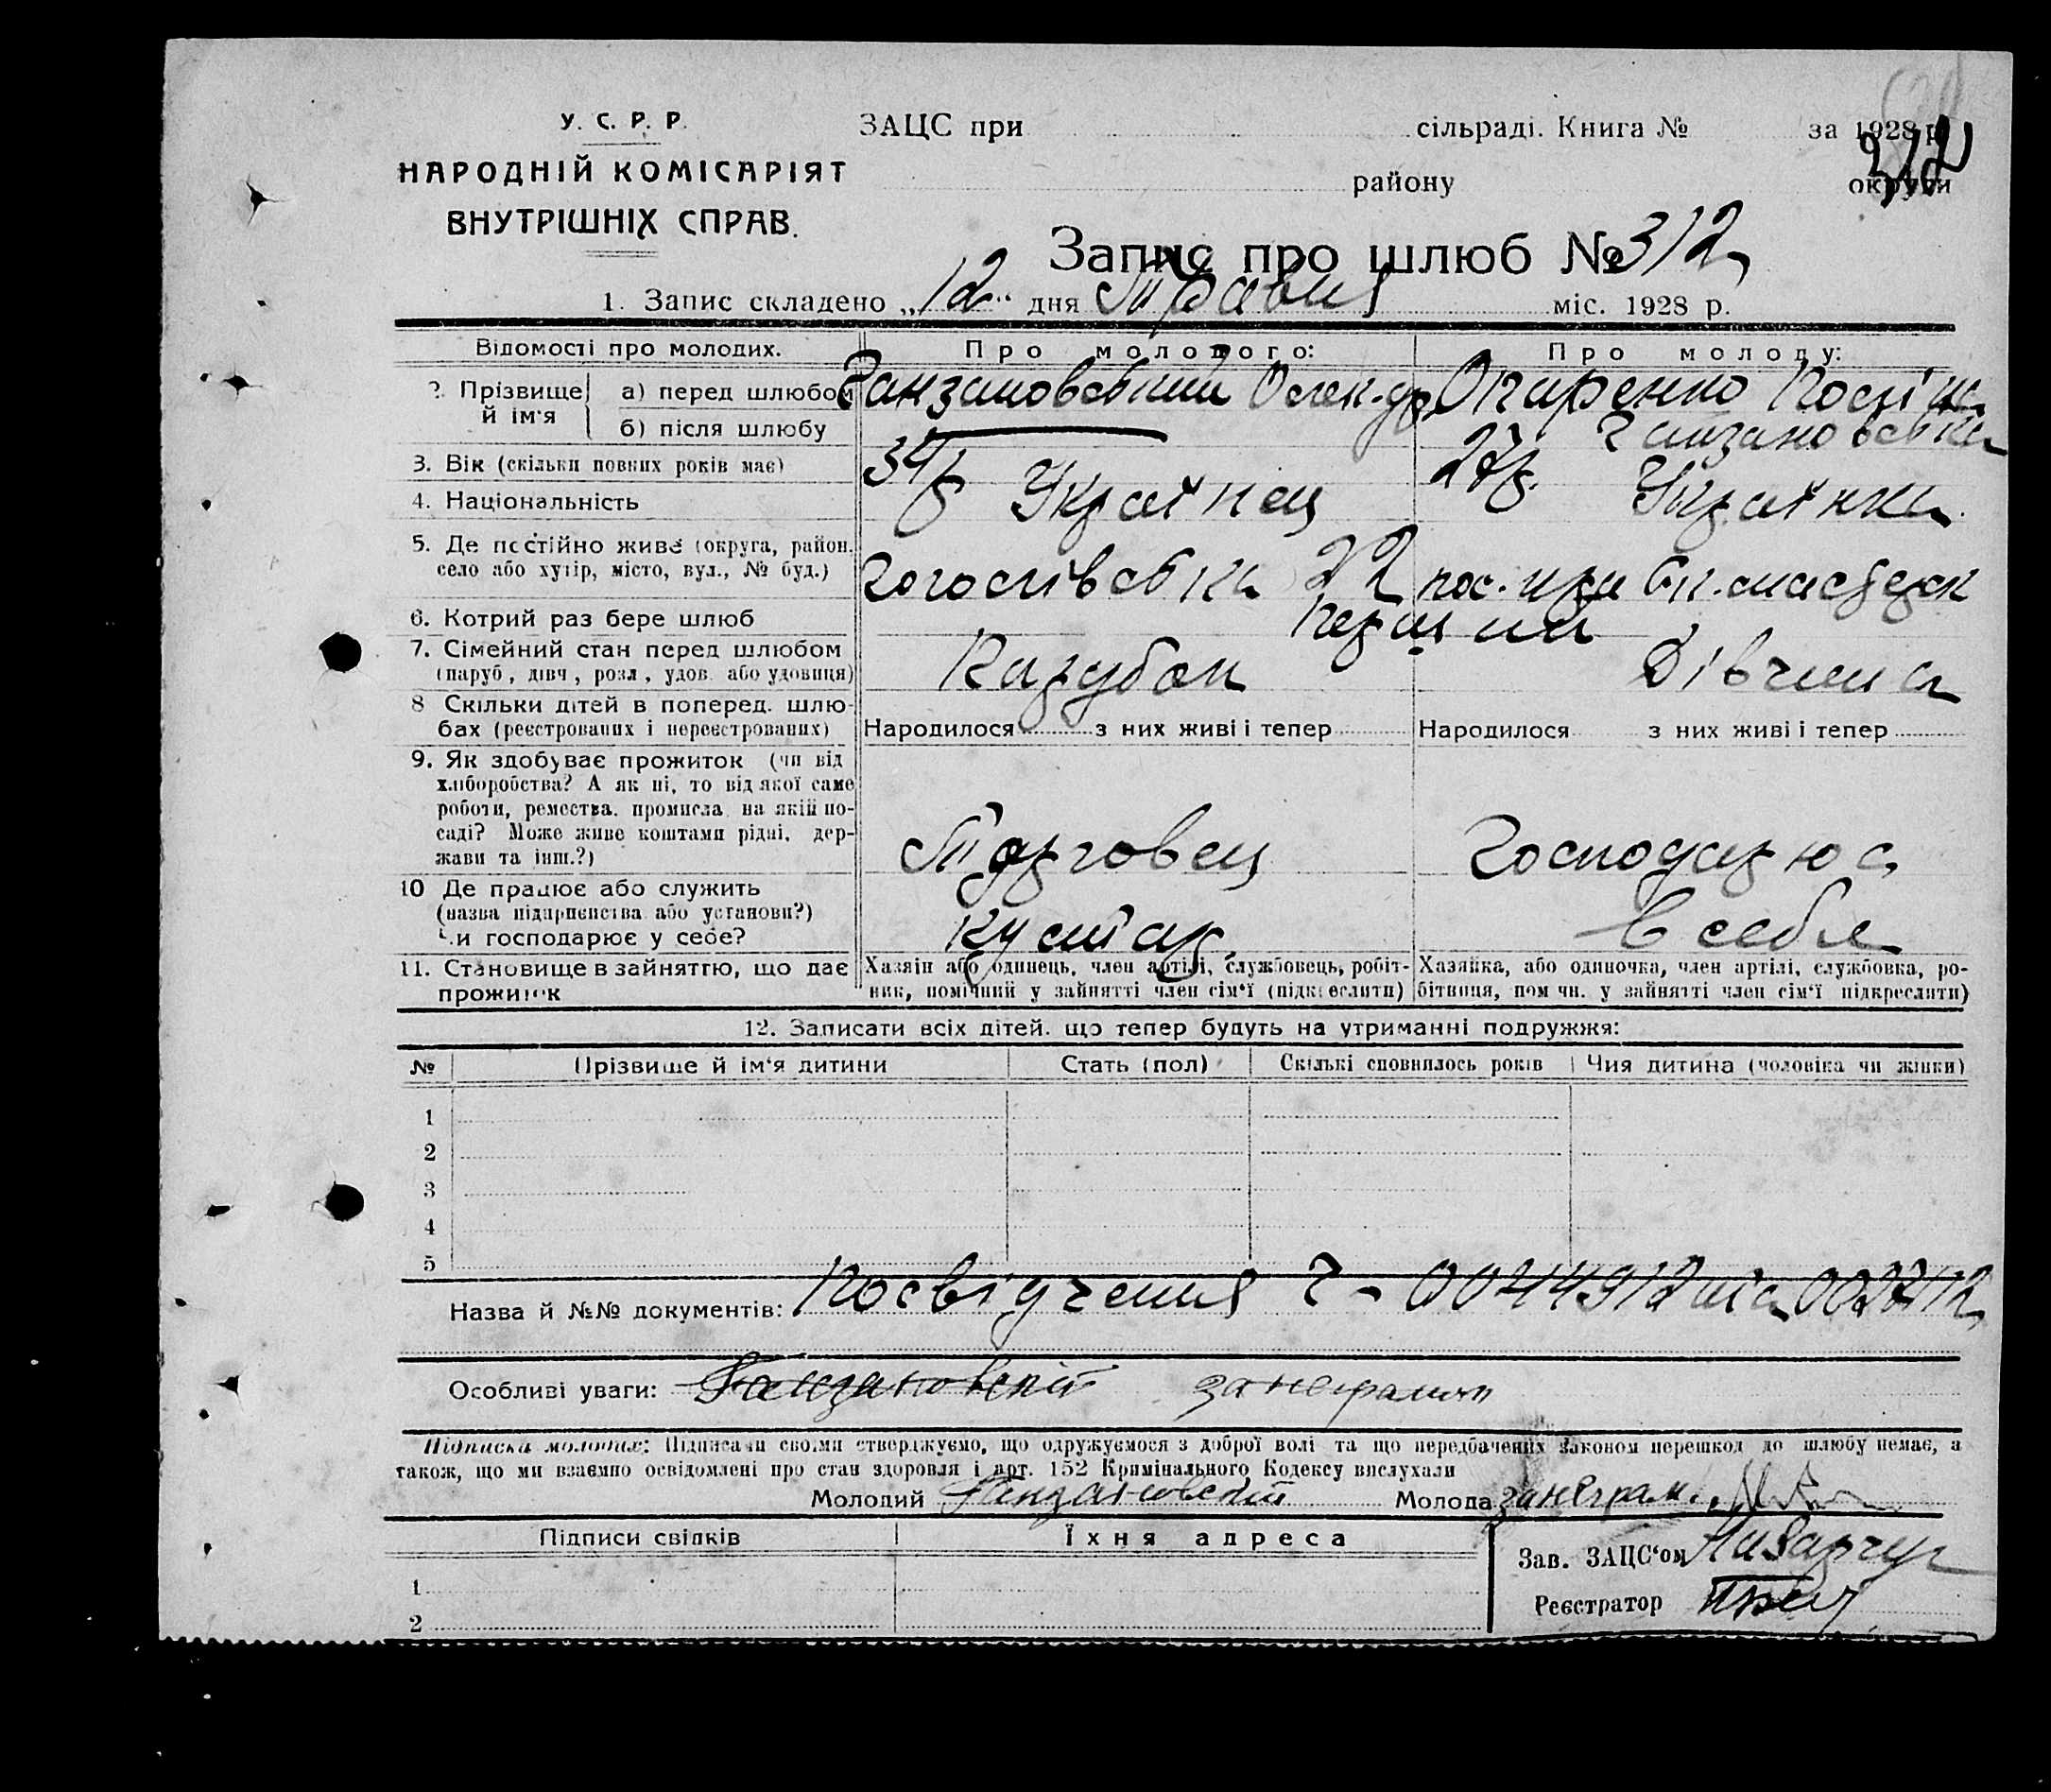 У. С. Р. Р.
НАРОДНІЙ КОМІСАРІЯТ
ВНУТРІШНІХ СПРАВ.
ЗАЦС при сільраді. Книга № за 1928 р.
312
району округи
Запис про шлюб № 312
1. Запис складено „12“ дня Травня міс. 1928 р.
Відомості про молодих.
Про молодого:
Про молоду:
2. Прізвище й ім'я
а) перед шлюбом
Ганзановський Олек-др.
б) після шлюбу
Ганзановська
3. Вік (скільки повних років має)
34 р
27 р.
4. Національність
Українец
Українка
5. Де постійно живе (округа, район,
село або хутір, місто, вул., № буд.)
22
6. Котрий раз бере шлюб
Перший
7. Сімейний стан перед шлюбом
(паруб, дівч, розл, удов. або удовиця)
Парубок
Дівчина
8 Скільки дітей в поперед. шлю-
бах (реєстрованих і нереєстрованих)
Народилося з них живі і тепер
Народилося з них живі і тепер
9. Як здобуває прожиток (чи від
хліборобства? А як ні, то від якої саме
роботи, ремества, промисла, на якій по-
саді? Може живе коштами рідні, дер-
жави та інш.?)
Торговец
Господарює
10 Де працює або служить
(назва підприємства або установи?)
Чи господарює у себе?
кустар
в себе
11. Становище в зайняттю, що дає
прожиток
Хазяїн або одинець, член артілі, службовець, робіт-
ник, помічний у зайнятті член сім'ї (підкреслити)
Хазяйка, або одиночка, член артілі, службовка, ро-
бітниця, помічн. у зайнятті член сім'ї підкреслити)
12. Записати всіх дітей, що тепер будуть на утриманні подружжя:
№ Прізвище й ім'я дитини Стать (пол) Скількі сповнилось років Чия дитина (чоловіка чи жінки)
1
2
3
4
5
Назва й №№ документів: Посвідчення Ч-0044912 та 002712
Особливі уваги: Ганзановскій
Підписка молодих: Підписами своїми стверджуємо, що одружуємося з доброї волі та що передбачених законом перешкод до шлюбу немає, а
також, що ми взаємно освідомлені про стан здоровля і арт. 152 Кримінального Кодексу вислухали
Молодий Ганзановский Молода занеграм.
Підписи свідків
Їхня адреса
Зав. ЗАЦС'ом
Реєстратор
1
2